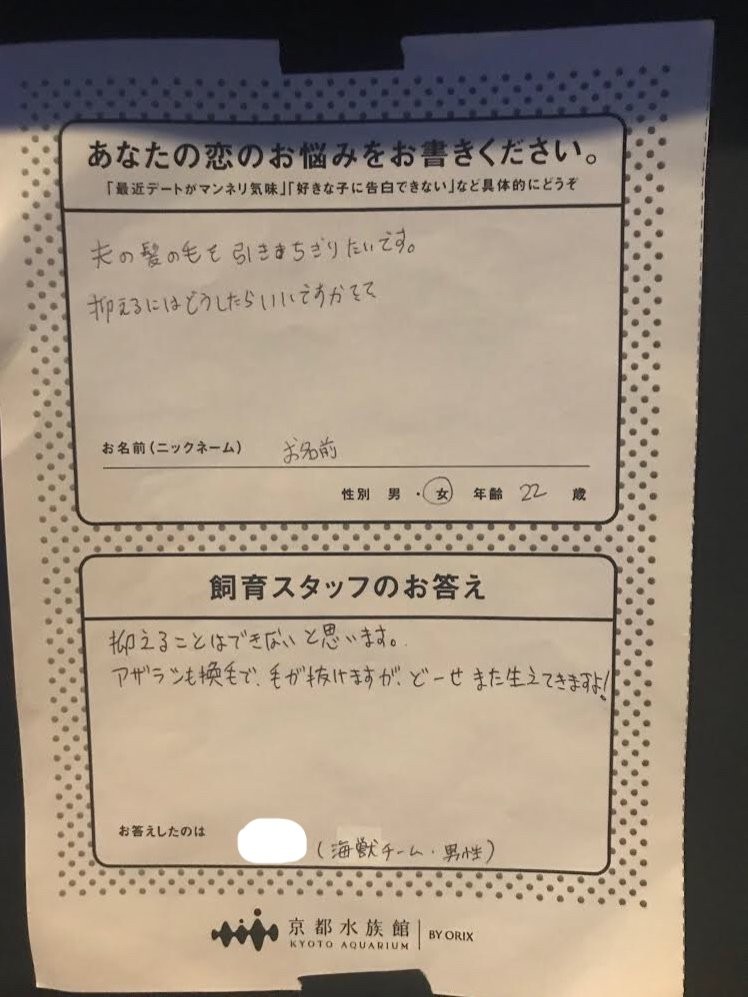 あなたの恋のお悩みをお書きください。
「最近デートがマンネリ気味」「好きな子に告白できない」など具体的にどうぞ
夫の髪の毛を引きちぎりたいです。
抑えるにはどうしたらいいですか
お名前(ニックネーム) お名前
性別 男・女 年齢 22 歳
飼育スタッフのお答え
抑えることはできないと思います。
アザラシも換毛で、毛が抜けますが、どーせまた生えてきますよ!
お答えしたのは
(海獣チーム・男性)
京都水族館
KYOTO AQUARIUM
BY ORIX